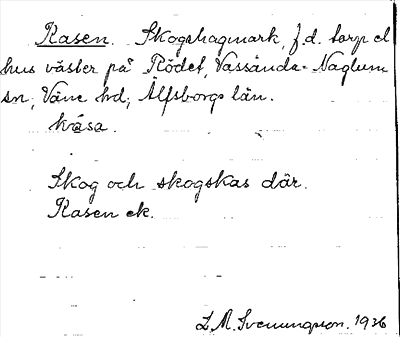 Rasen. Skogshagmark, f.d. torp el
hus väster på Rödet, Vassända-Naglum
sn, Väne hd, Älfsborgs län.
kråsa.
Skog och skogskas där.
Rasen ek.
L. M. Svenungsson. 1936